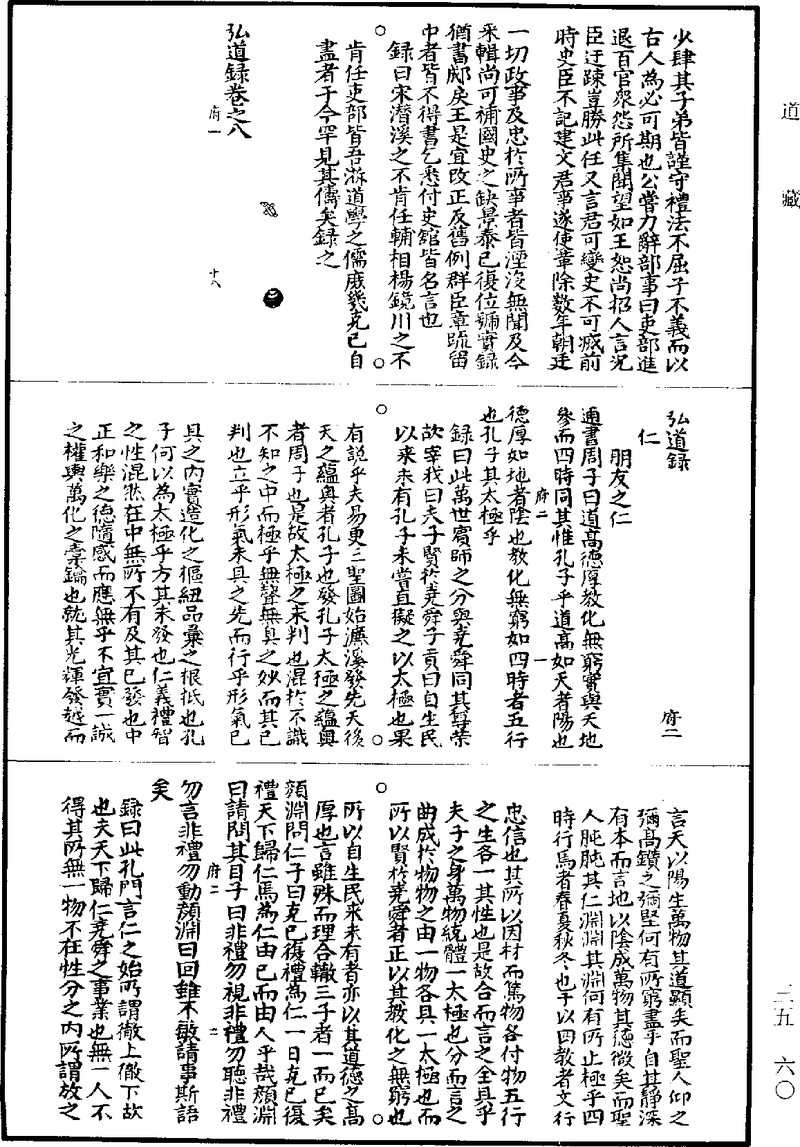 道藏
少肆其子弟皆謹守禮法不屈子不義而以
古人為必可期也公嘗力辭部事曰吏部進
退百官衆怨所集聞望如王恕尚招人言況
臣迂疎豈勝此任又言君可變史不可滅前
時史臣不記建文君事遂使革除數年朝廷
一切政事及忠於所事者皆湮沒無聞及今
采輯尚可補國史之缺景泰已復位號實錄
猶書郕戾王是宜改正反舊例群臣章疏留
中者皆不得書乞悉付史舘皆名言也
錄曰宋潛溪之不肯任輔相楊鏡川之不
肯任吏部皆吾浙道學之儒庶幾克己自
盡者于今罕見其儔矣錄之
弘道録卷之八
府一
十八
弘道録
府二
仁
朋友之仁
通書周子曰道高德厚教化無窮實與天地
參而四時同其惟孔子乎道高如天者陽也
府二
一
德厚如地者陰也教化無窮如四時者五行
也孔子其太極乎
錄曰此萬世賓師之分與堯舜同其尊榮
故宰我曰夫子賢於堯舜子貢曰自生民
以來未有孔子未嘗直擬之以太極也果
有説乎夫易更三聖圖始濂溪發先天後
天之蘊奥者孔子也發孔子太極之蘊奥
者周子也是故太極之未判也混於不識
不知之中而極乎無聲無臭之妙而其已
判也立乎形氣未具之先而行乎形氣已
具之内實造化之樞紐品彙之根柢也孔
子何以為太極乎方其未發也仁義禮智
之性混然在中無所不有及其已發也中
正和樂之德隨感而應無乎不宜實一誠
之權輿萬化之橐籥也就其光輝發越而
言天以陽生萬物其道顯矣而聖人仰之
彌高鑽之彌堅何有所窮盡乎自其靜深
有本而言地以陰成萬物其德微矣而聖
人肫肫其仁淵淵其淵何有所止極乎四
時行焉者春夏秋冬也子以四教者文行
忠信也其所以因材而篤物各付物五行
之生各一其性也是故合而言之全具乎
夫子之身萬物統體一太極也分而言之
曲成於物物之由一物各具一太極也而
所以賢於堯舜者正以其教化之無窮也
所以自生民來未有者亦以其道德之高
厚也言雖殊而理合轍三子者一而已矣
顔淵問仁子曰克己復禮為仁一日克己復
禮天下歸仁焉為仁由己而由人乎哉顔淵
曰請問其目子曰非禮勿視非禮勿聽非禮
府二
二
勿言非禮勿動顔淵曰回雖不敏請事斯語
矣
錄曰此孔門言仁之始所謂徹上徹下故
也夫天下歸仁堯舜之事業也無一人不
得其所無一物不在性分之内所謂放之
三五　六〇